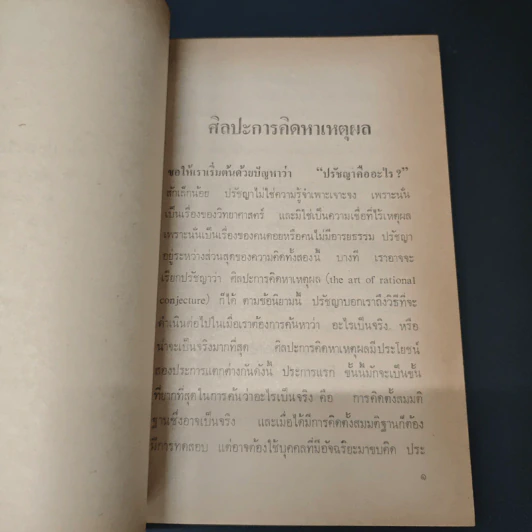 ศิลปะการคิดหาเหตุผล
ขอให้เราเริ่มต้นด้วยปัญหาว่า "ปรัชญาคืออะไร ?"
สักเล็กน้อย ปรัชญาไม่ใช่ความรู้จำเพาะเจาะจง เพราะนั่น
เป็นเรื่องของวิทยาศาสตร์ และมิใช่เป็นความเชื่อที่ไร้เหตุผล
เพราะนั่นเป็นเรื่องของคนดอยหรือคนไม่มีอารยธรรม ปรัชญา
อยู่ระหว่างส่วนสุดของความคิดทั้งสองนี้ บางที เราอาจจะ
เรียกปรัชญาว่า ศิลปะการคิดหาเหตุผล (the art of rational
conjecture) ก็ได้ ตามข้อนิยามนี้ ปรัชญาบอกเราถึงวิธีที่จะ
ดำเนินต่อไปในเมื่อเราต้องการค้นหาว่า อะไรเป็นจริง หรือ
น่าจะเป็นจริงมากที่สุด ศิลปะการคิดหาเหตุผลมีประโยชน์
สองประการแตกต่างกันดังนี้ ประการแรก ขั้นนี้มักจะเป็นขั้น
ที่ยากที่สุดในการค้นว่าอะไรเป็นจริง คือ การคิดตั้งสมมติ
ฐานซึ่งอาจเป็นจริง และเมื่อได้มีการคิดตั้งสมมติฐานก็ต้อง
มีการทดสอบ แต่อาจต้องใช้บุคคลที่มีอัจฉริยะมาขบคิด ประ
๑